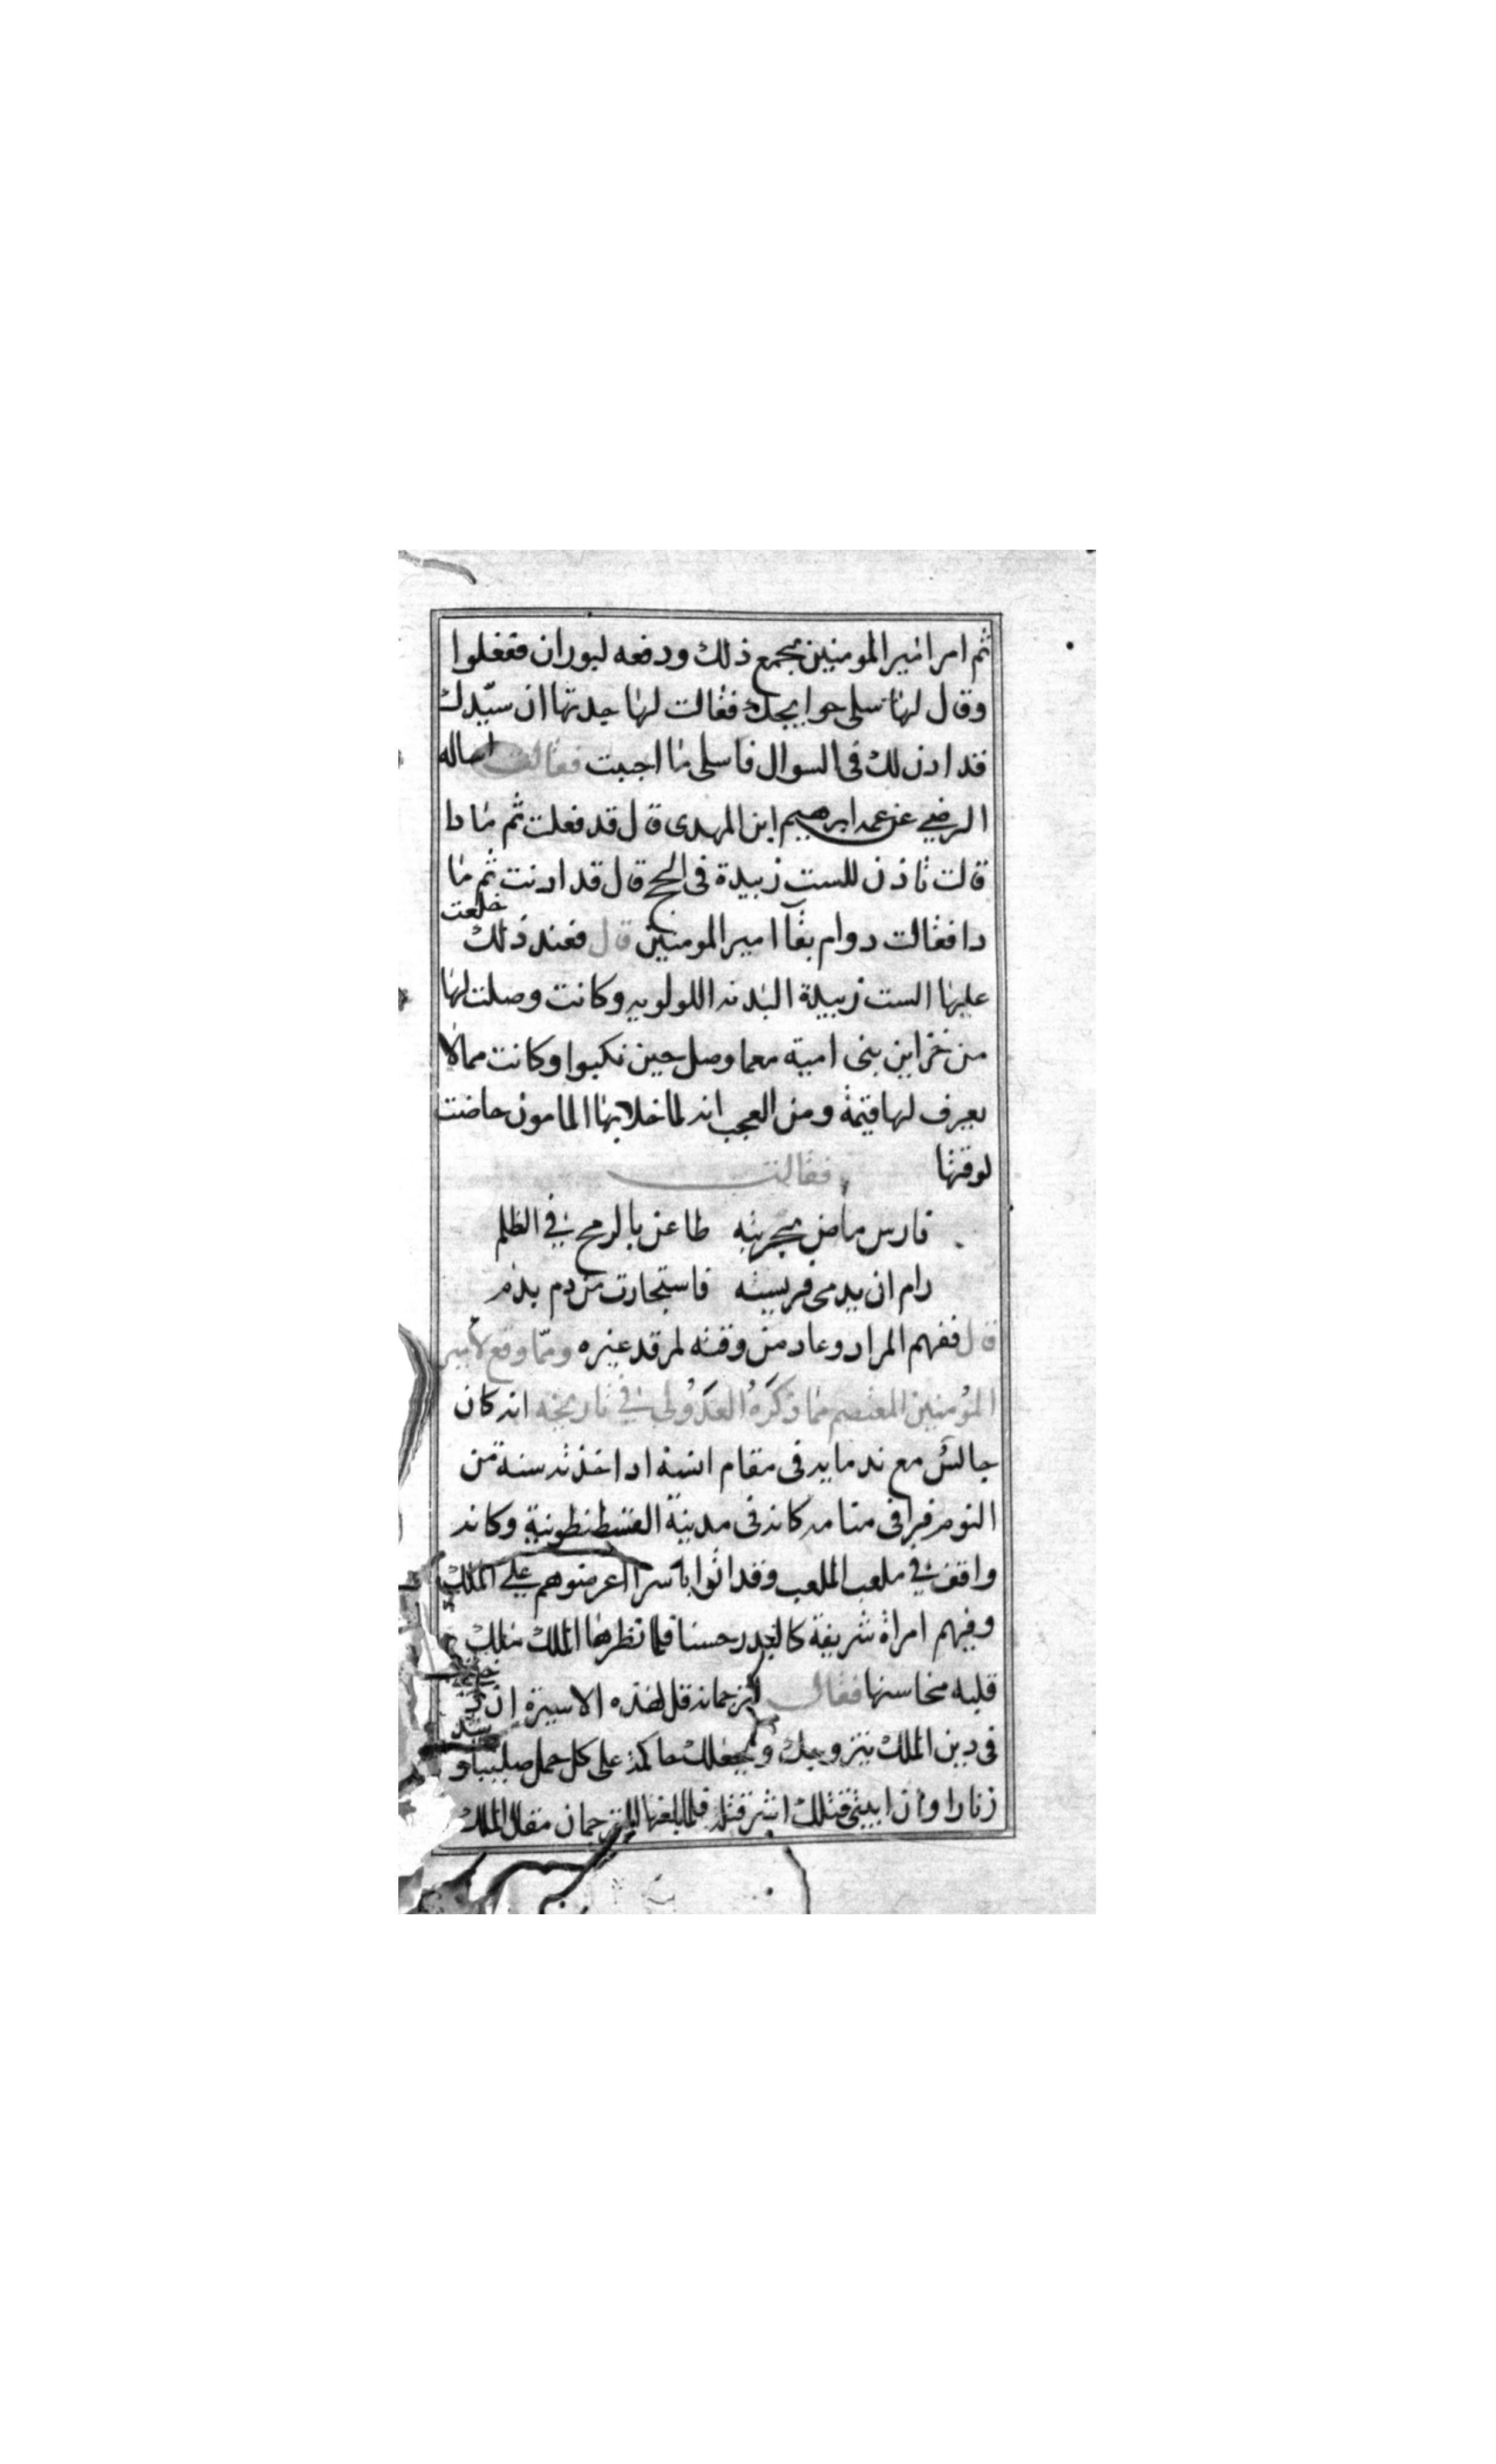 ثم امر امير المومنين بجمع ذلك ودفعه لبوران ففعلوا
وقال لها سلى حوايجك فقالت لها جدتها ان سيدك
قد اذن لك فى السوال فاسلى ما احببت فقالت اساله
الرضى عن عمه ابرهيم ابن المهدى قال قد فعلت ثم ما دا
قالت تاذن للست زبيدة فى الحج قال قد ادنت ثم ما
دا فقالت دوام بقآ امير المومنين قال فعند ذلك خلعت
عليها الست زبيدة البدنه اللولويه وكانت وصلت لها
من خزاين بنى امية معما وصل حين نكبوا وكانت مما لا
يعرف لها قيمة ومن العجب انه لما خلا بها المامون حاضت
لوقتها فقالت
فارس ماض بحربته طاعن بالرمح في الظلم
رام ان يدمى فريسته فاستجارت من دم بدم
قال ففهم المراد وعاد من وقته لمرقد غيره ومما وقع لامير
المؤمنين المعتصم مما ذكره في تاريخه انه كان
جالس مع ندمايه فى مقام انسه اد اخذته سنة من
النوم فراى فى منامه كانه فى مدينة القسطنطونية وكانه
واقف في ملعب الملعب وقد اتوا باسرا اعرضوهم على الملك
وفيهم امراة شريفة كالبدر حسنا فلما نظرها الملك ملك
قلبه محاسنها فقال لترجمانه قل لهذه الاسيرة ان
فى دين الملك يتزوجك ويجعلك حاكمة على كل حمل صليبا و
زنارا وان ابيتى قتلك اشر قتله فلما بلغها الترجمان مقال الملك